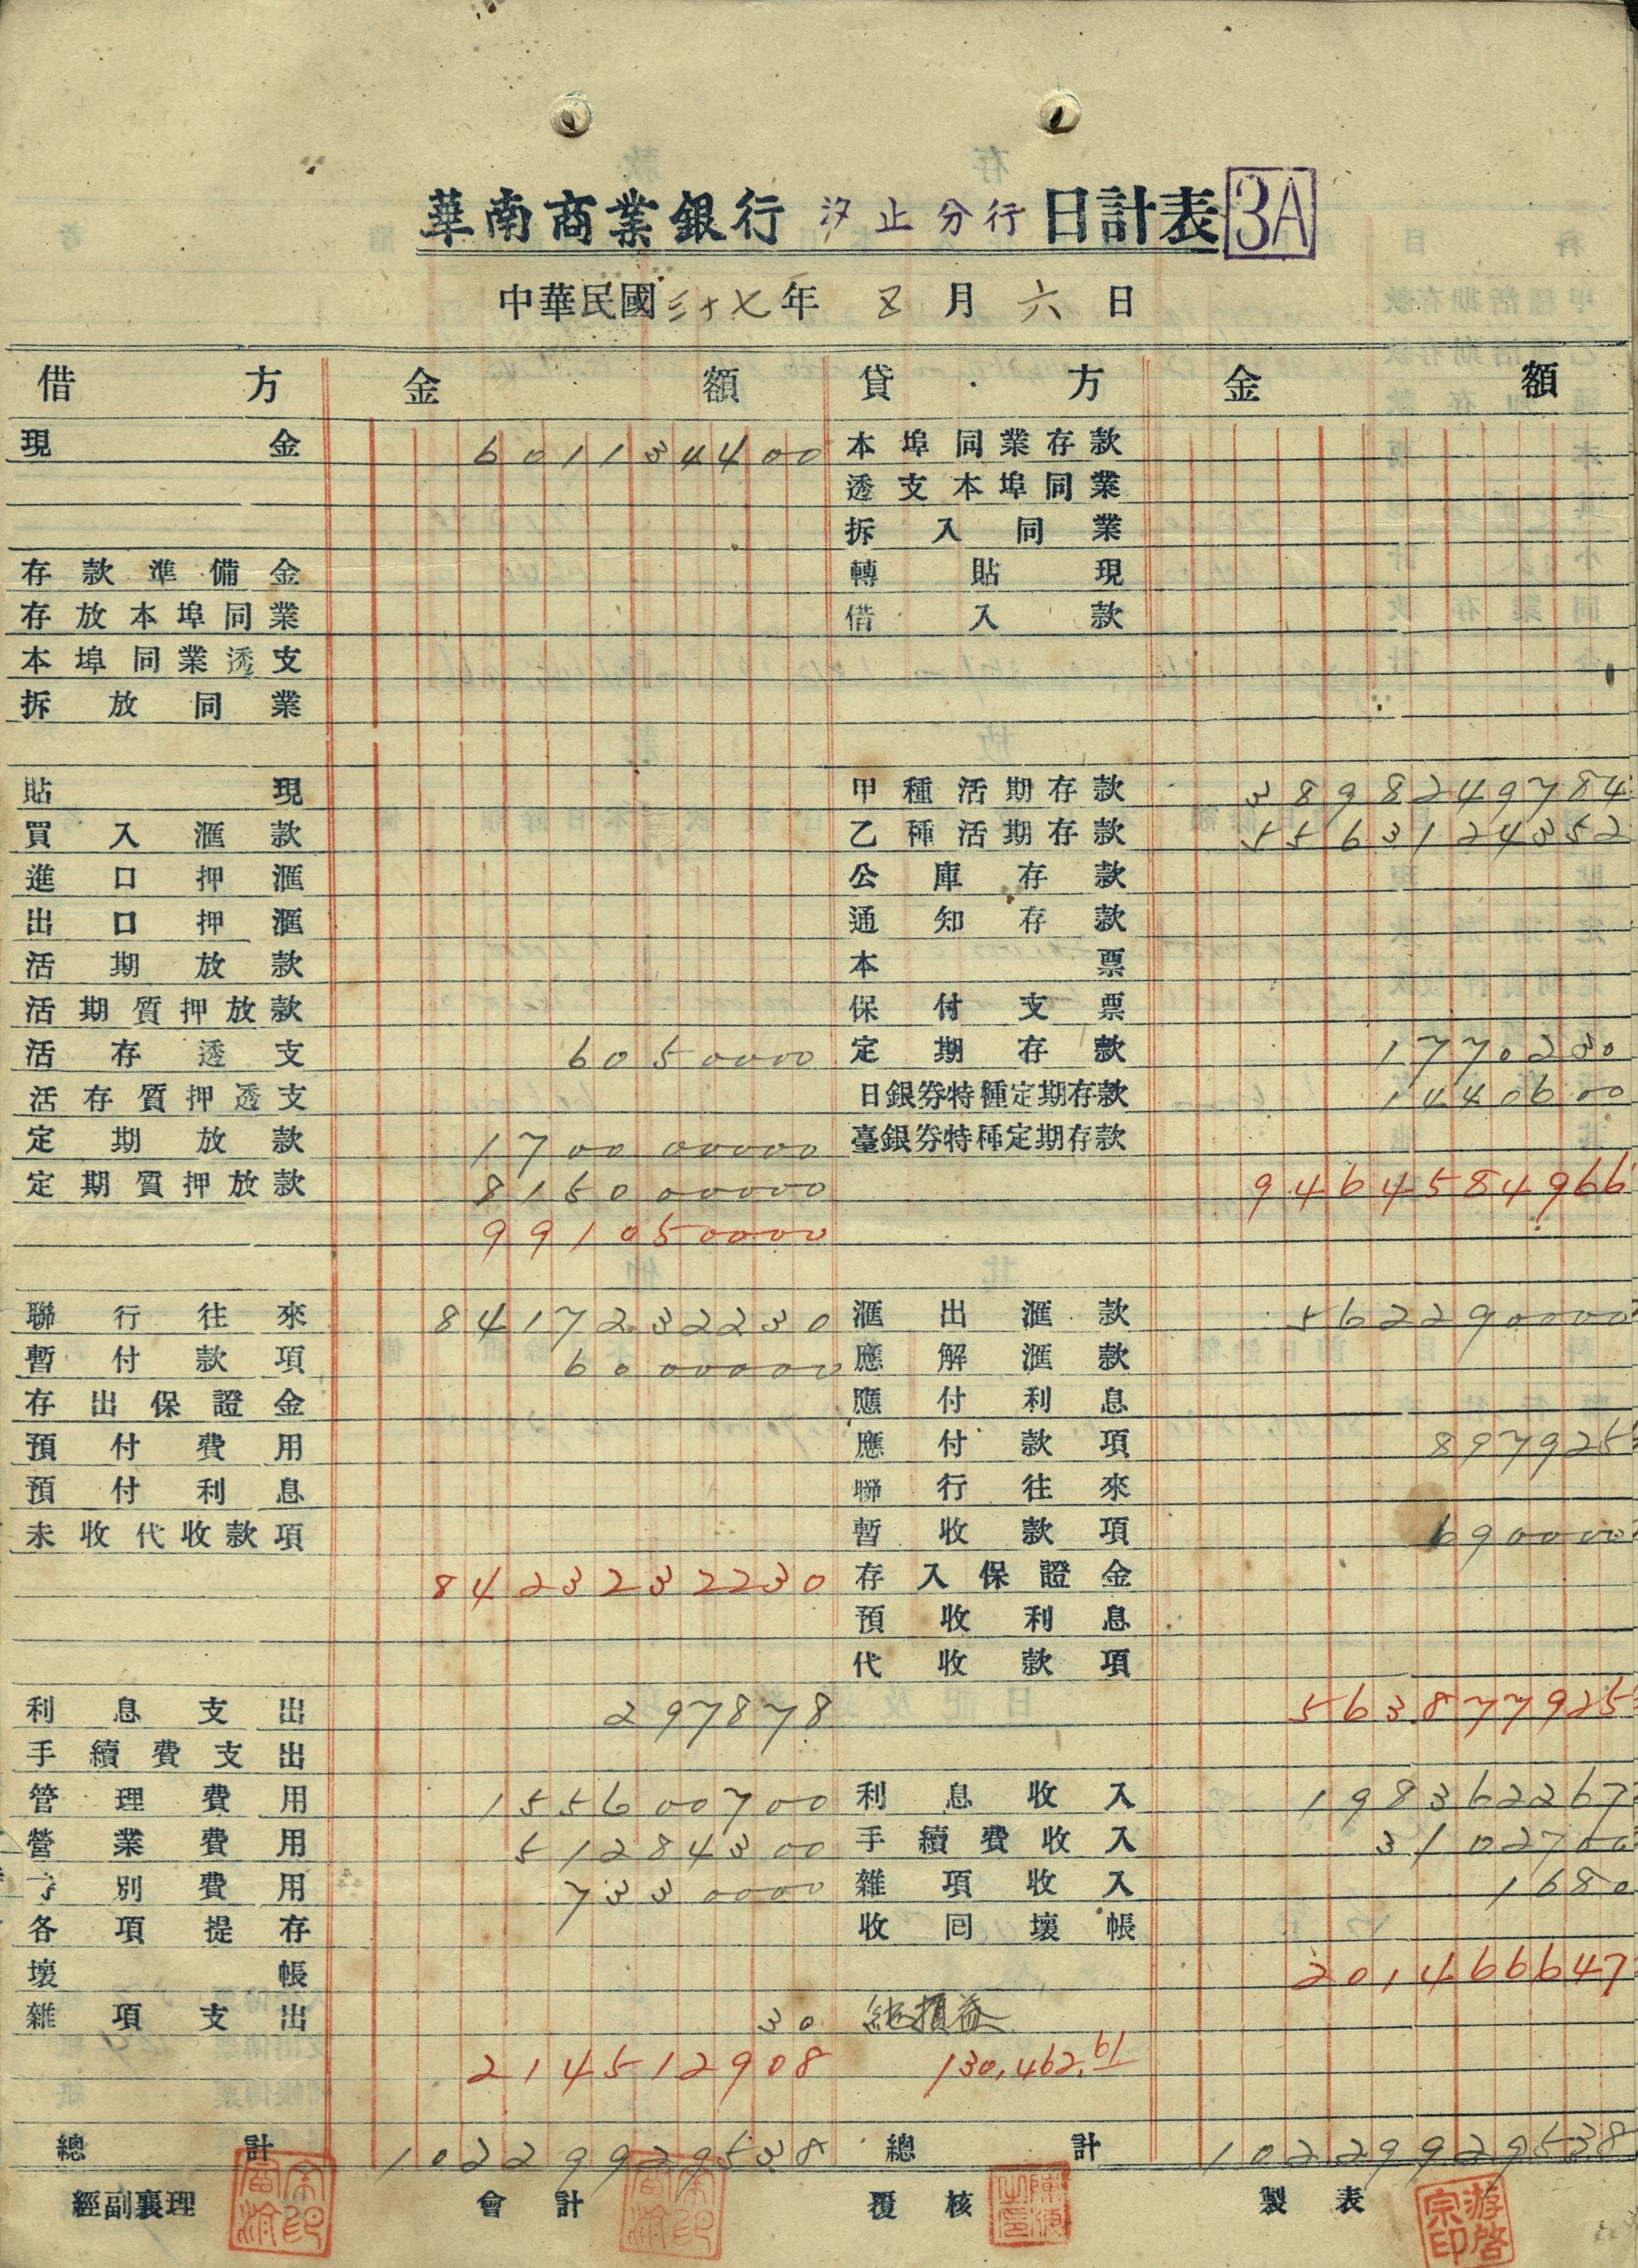 華南商業銀行 汐止分行 日計表 3A
中華民國三十七年 五月六日
借方 金額 貸方 金額
現金 601134400 本埠同業存款
透支本埠同業
拆入同業
存款準備金 轉貼現
存放本埠同業 借入款
本埠同業透支
拆放同業
貼現 甲種活期存款 3898249784
買入滙款 乙種活期存款 5563124352
進口押滙 公庫存款
出口押滙 通知存款
活期放款 本票
活期質押放款 保付支票
活存透支 6050000 定期存款 1770230
活存質押透支 日銀券特種定期存款 1440600
定期放款 170000000 臺銀券特種定期存款
定期質押放款 815000000 9464584966
991050000
聯行往來 8417232230 滙出滙款 562290000
暫付款項 6000000 應解滙款
存出保證金 應付利息
預付費用 應付款項 897925
預付利息 聯行往來
未收代收款項 暫收款項 690000
8423232230 存入保證金
預收利息
代收款項
利息支出 297878 563877925
手續費支出
管理費用 155600700 利息收入 198362267
營業費用 51284300 手續費收入 3102700
別費用 7330000 雜項收入 1680
各項提存 收回壞帳
壞帳 201466647
雜項支出 30 純損益
214512908 130,462.61
總計 10229929538 總計 10229929538
經副襄理 會計 覆核 製表
游啓宗印